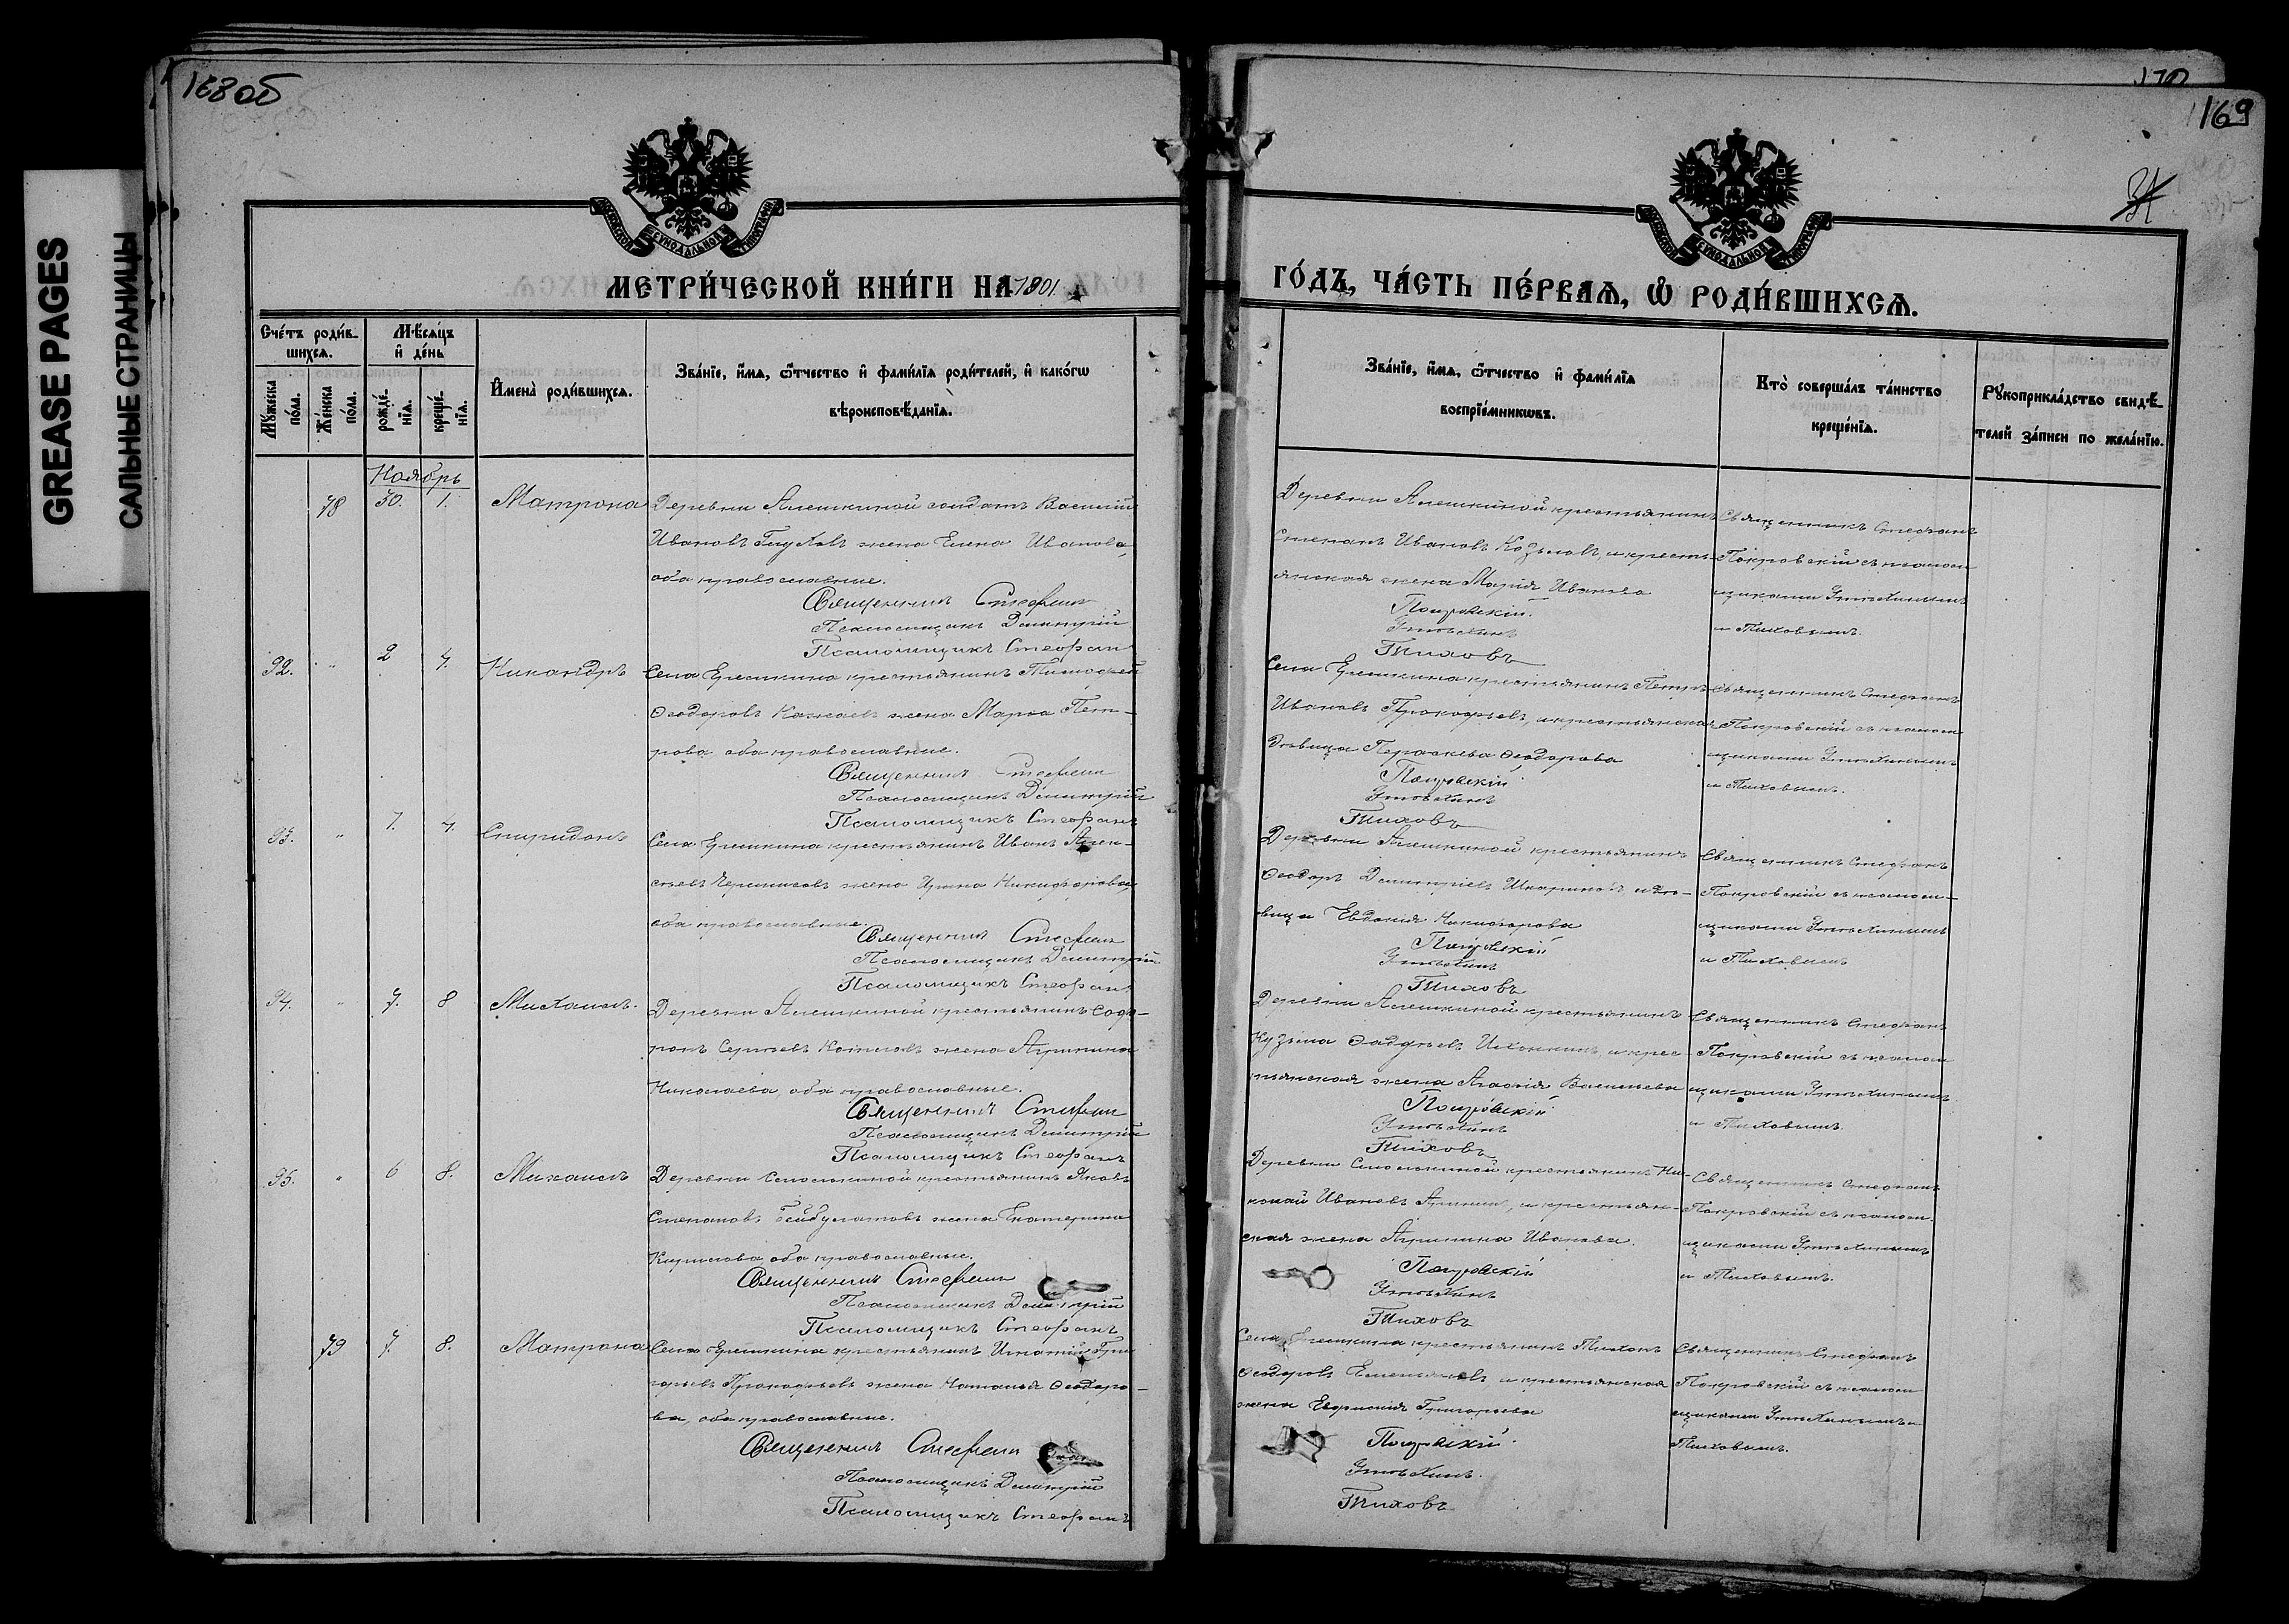 GREASE PAGES
САЛЬНЫЕ СТРАНИЦЫ
168об
170
169
31
МЕТРИ́ЧЕСКОЙ КНИ́ГИ НА 1901
ГО́ДЪ, ЧА́СТЬ ПЕ́РВАѦ, Ѿ РОДИ́ВШИХСѦ.
Сче́тъ роди́в-
шихсѧ.
Мѣ́сѧцъ
и де́нь
Мꙋ́жеска по́ла.
Же́нска по́ла.
рожде́-нїѧ.
креще́-нїѧ.
Имена̀ роди́вшихсѧ.
Зва́нїе, и́мѧ, ѻ҆́тчество и фами́лїѧ роди́телей, и како́гѡ
вѣроисповѣ́данїѧ.
Зва́нїе, и́мѧ, ѻ҆́тчество и фами́лїѧ
воспрїе́мникѡвъ.
Кто̀ соверша́лъ та́инство
креще́нїѧ.
Рꙋкоприкла́дство свидѣ́-
телей за́писи по жела́нїю.
Ноябрь
78 30. 1. Матрона
Деревни Алешкиной солдатъ Василій
Ивановъ Глуховъ жена Елена Иванова,
оба православные.
Священникъ Стефанъ
Псаломщикъ Димитрій
Псаломщикъ Стефанъ
Деревни Алешкиной крестьянинъ
Степанъ Ивановъ Козловъ, и кресть-
янская жена Марія Иванова
Покровскій
Утѣхинъ
Тиховъ
Священникъ Стефанъ
Покровскій съ псалом
щиками Утѣхинымъ
и Тиховымъ.
92. " 2 4. Никандръ
Села Еремкина крестьянинъ Тимофей
Ѳеодоровъ жена Марѳа Пет-
рова оба православные.
Священникъ Стефанъ
Псаломщикъ Димитрій
Псаломщикъ Стефанъ
Села Еремкина крестьянинъ Петръ
Ивановъ Прокофьевъ, и крестьянская
дѣвица Параскева Ѳеодорова
Покровскій
Утѣхинъ
Тиховъ
Священникъ Стефанъ
Покровскій съ псалом
щиками Утѣхинымъ
и Тиховымъ.
93. " 1. 4. Спиридонъ
Села Еремкина крестьянинъ Иванъ Алек-
сѣевъ жена Ирина Никифорова
оба православные.
Священникъ Стефанъ
Псаломщикъ Димитрій
Псаломщикъ Стефанъ
Деревни Алешкиной крестьянинъ
Ѳеодоръ Димитріевъ и дѣ-
вица Евдокія Никифорова
Покровскій
Утѣхинъ
Тиховъ
Священникъ Стефанъ
Покровскій съ псалом-
щиками Утѣхинымъ
и Тиховымъ
94. " 7. 8 Михаилъ.
Деревни Алешкиной крестьянинъ Соф-
ронъ Сергѣевъ жена Агрипина
Николаева, оба православные.
Священникъ Стефанъ
Псаломщикъ Димитрій
Псаломщикъ Стефанъ
Деревни Алешкиной крестьянинъ
Кузьма Ѳаддѣевъ и крес-
тьянская жена Агафія Васильева
Покровскій
Утѣхинъ
Тиховъ
Священникъ Стефанъ
Покровскій съ псалом
щиками Утѣхинымъ
и Тиховымъ.
95. " 6 8. Михаилъ
Деревни Смолькиной крестьянинъ Яковъ
Степановъ жена Екатерина
Кирилова оба православные.
Священникъ Стефанъ
Псаломщикъ Димитрій
Псаломщикъ Стефанъ
Деревни Смолькиной крестьянинъ Ни-
колай Ивановъ и крестьян-
ская жена Агрипина Иванова.
Покровскій
Утѣхинъ
Тиховъ
Священникъ Стефанъ
Покровскій съ псалом.
щиками Утѣхинымъ
и Тиховымъ.
79 7. 8. Матрона
Села Еремкина крестьянинъ Игнатій Гри
горьевъ Прокофьевъ жена Наталья Ѳеодоро-
ва, оба православные.
Священникъ Стефанъ
Псаломщикъ Димитрій
Псаломщикъ Стефанъ
Села Еремкина крестьянинъ Тихонъ
Ѳеодоровъ Емельяновъ, и крестьянская
жена Евфимія Григорьева
Покровскій
Утѣхинъ.
Тиховъ
Священникъ Стефанъ
Покровскій съ псалом
щиками Утѣхинымъ и
Тиховымъ.